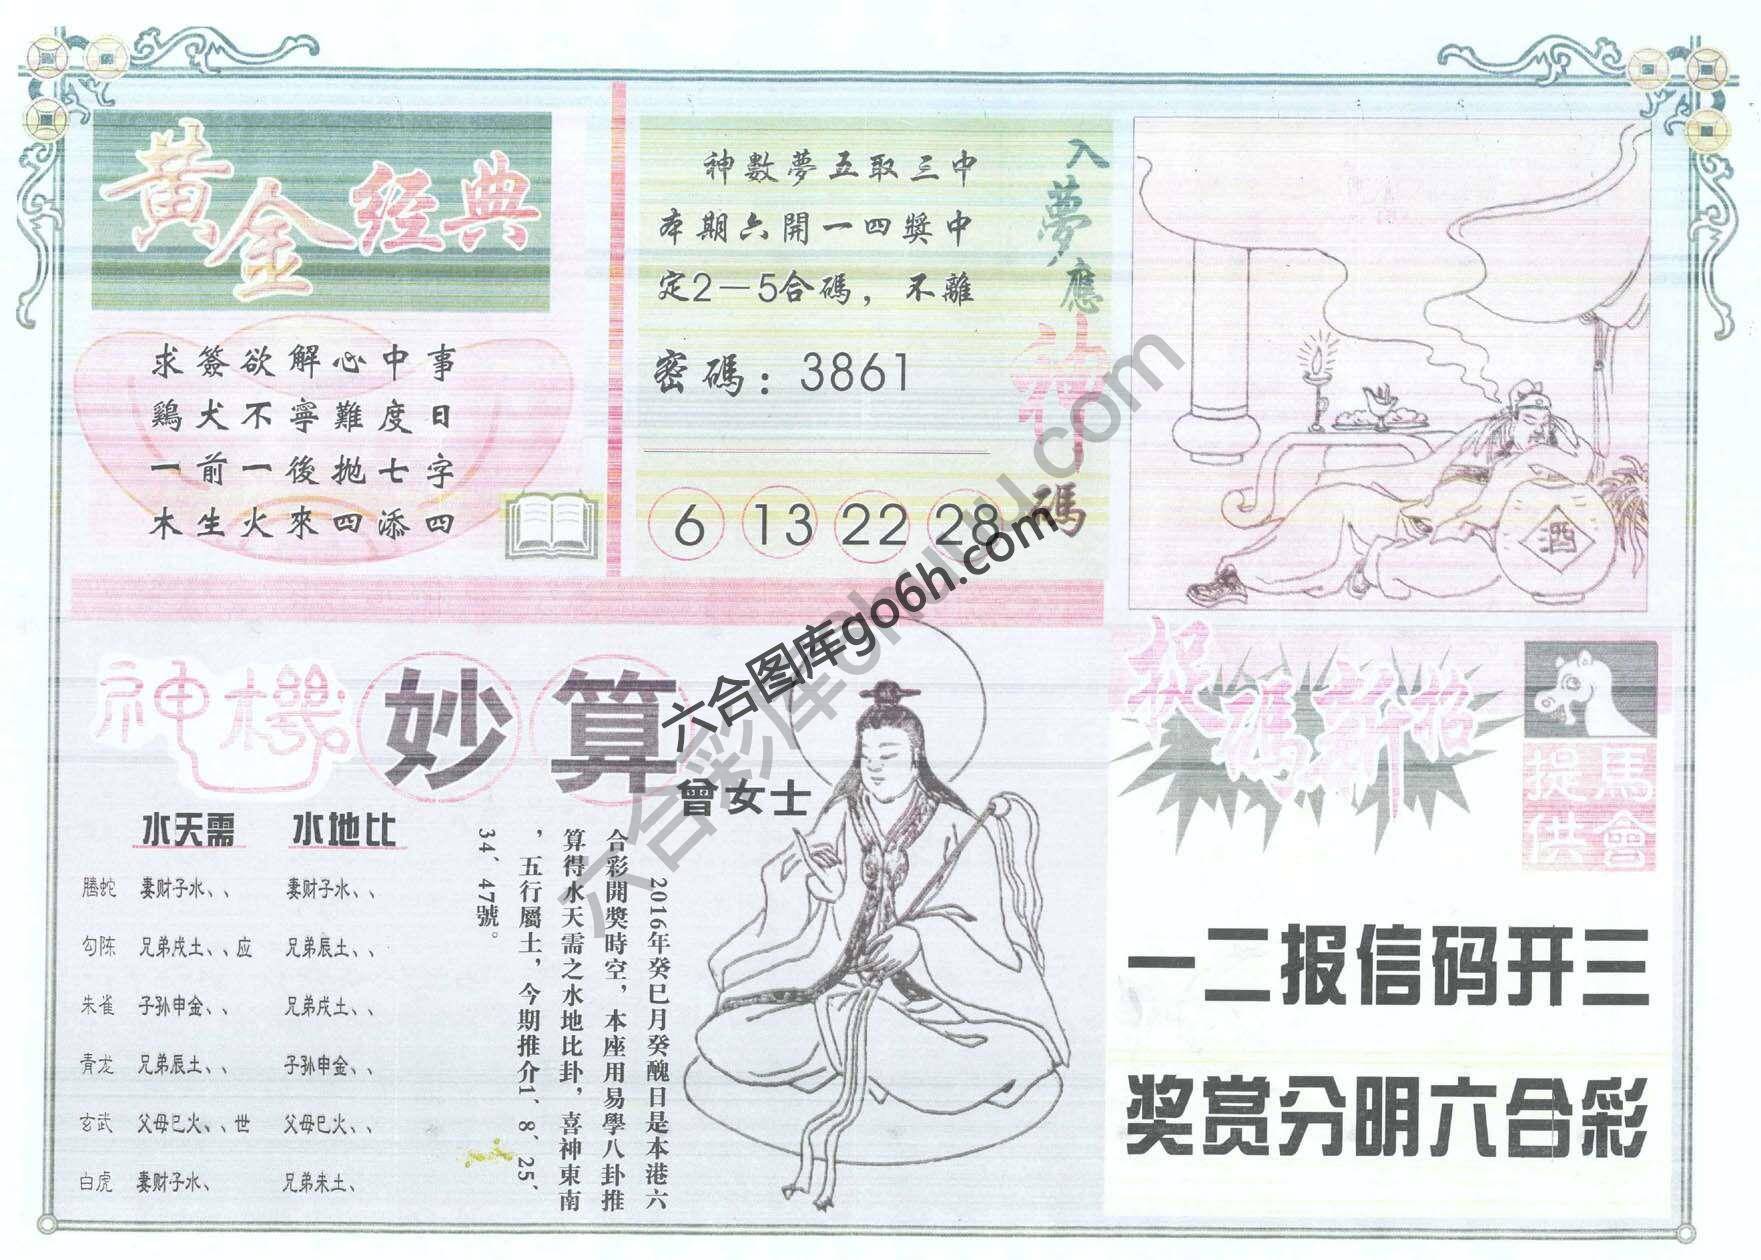 黄金经典
求簽欲解心中事
鷄犬不寧難度日
一前一後抛七字
木生火來四添四
神數夢五取三中
本期六開一四獎中
定2－5合碼，不離
密碼：3861
6 13 22 28
入夢應神碼
酒
神機妙算
曾女士
水天需 水地比
腾蛇 妻财子水、、 妻财子水、、
勾陈 兄弟戌土、、应 兄弟辰土、、
朱雀 子孙申金、、 兄弟戌土、、
青龙 兄弟辰土、、 子孙申金、、
玄武 父母巳火、、世 父母巳火、、
白虎 妻财子水、 兄弟未土、
2016年癸巳月癸醜日是本港六
合彩開獎時空，本座用易學八卦推
算得水天需之水地比卦，喜神東南
，五行屬土，今期推介1、8、25、
34、47號。
捉碼新招
捉馬
供會
一二报信码开三
奖赏分明六合彩
六合图库go6h.com